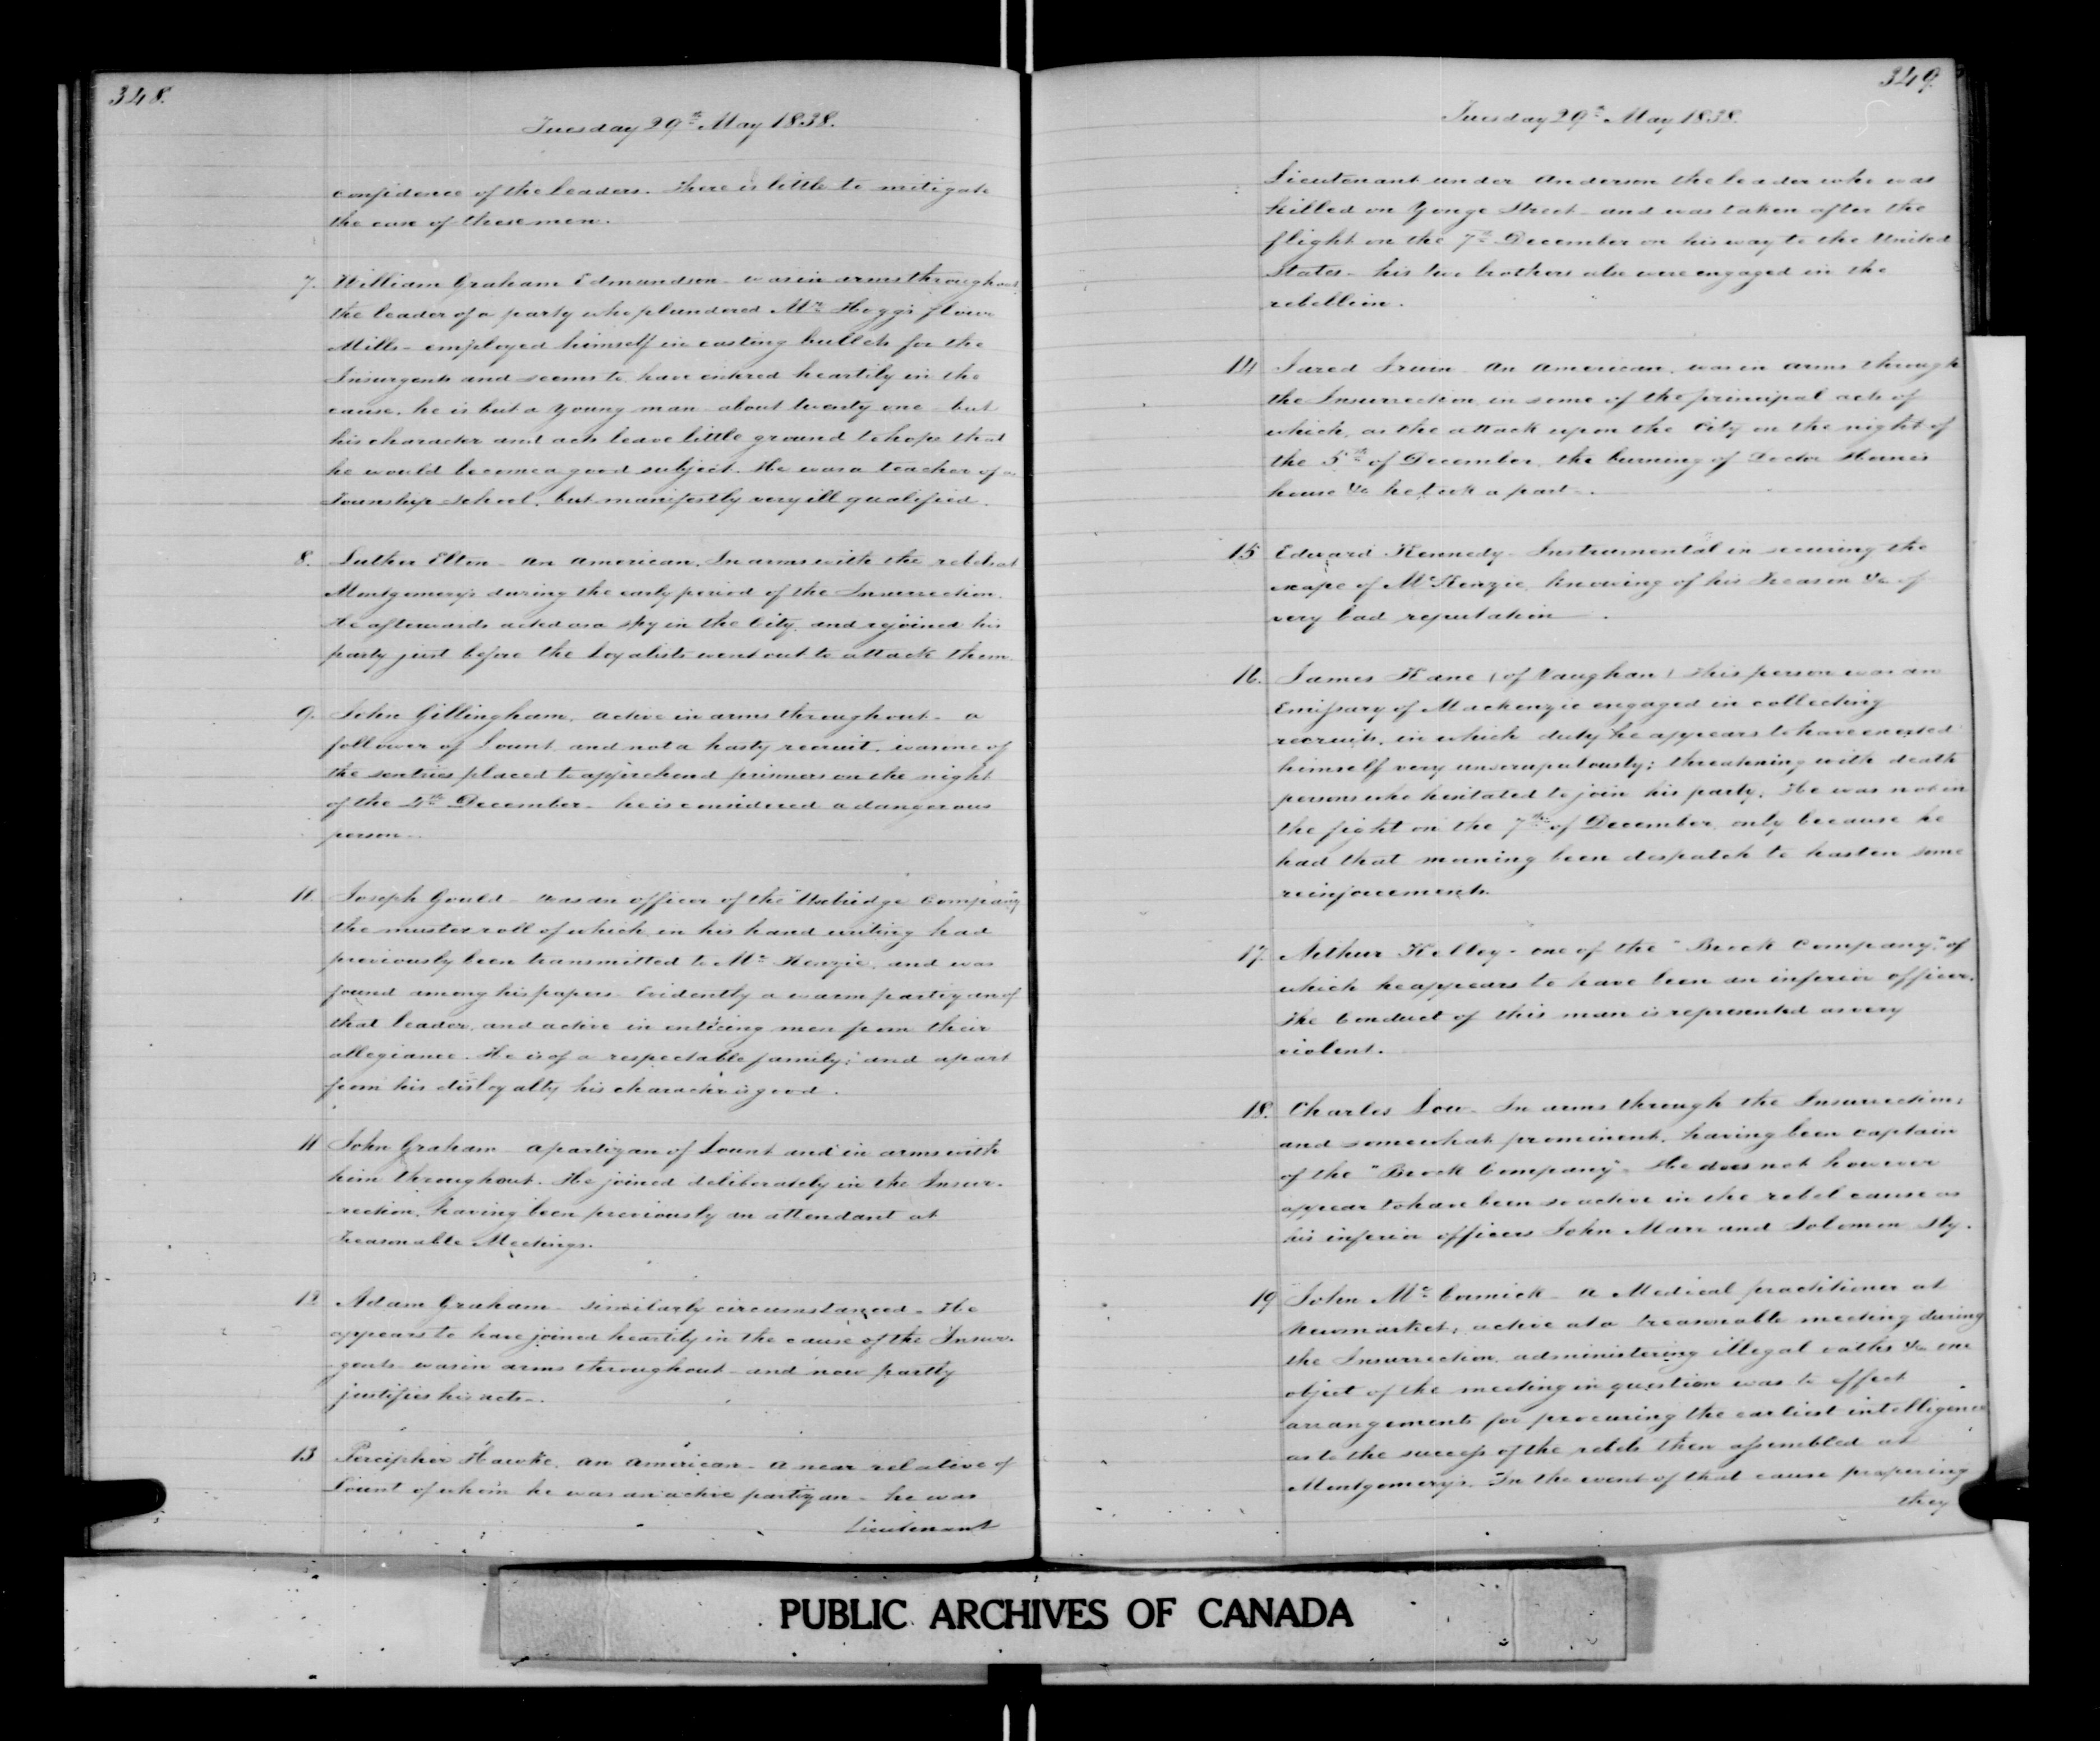 348.
Tuesday 29th May 1838.
confidence of the leaders. There is little to mitigate
the case of these men.
7. William Graham Edmundson - was in arms throughout
the leader of a party who plundered Mr. Hogg's flour
Mills - employed himself in casting bullets for the
Insurgents and seems to have entered heartily in the
cause. he is but a young man about twenty one - but
his character and acts leave little ground to hope that
he would become a good subject. He was a teacher of a
Township School, but manifestly very ill qualified.
8. Luther Elton - An American. In arms with the rebels at
Montgomery's during the early period of the Insurrection.
He afterwards acted as a spy in the City. and rejoined his
party just before the Loyalists went out to attack them.
9. John Gillingham, active in arms throughout - a
follower of Lount and not a hasty recruit. was one of
the sentries placed to apprehend prisoners on the night
of the 4th December - he is considered a dangerous
person -.
10. Joseph Gould - was an officer of the "Uxbridge Company"
the muster roll of which in his hand writing had
previously been transmitted to McKenzie, and was
found among his papers. Evidently a warm partizan of
that leader, and active in enticing men from their
allegiance. He is of a respectable family; and apart
from his disloyalty his character is good.
11 John Graham - a partizan of Lount and in arms with
him throughout. He joined deliberately in the Insur-
-rection, having been previously an attendant at
Treasonable Meetings.
12 Adam Graham - similarly circumstanced - He
appears to have joined heartily in the cause of the Insur-
-gents was in arms throughout - and now partly
justifies his acts -.
13 Percipher Hawke, an American - a near relative of
Lount of whom he was an active partizan - he was
Lieutenant
349.
Tuesday 29th May 1838.
Lieutenant under Anderson the leader who was
killed on Yonge Street - and was taken after the
flight on the 7th December on his way to the United
States - his two brothers also were engaged in the
rebellion.
14 Jared Irwin - An American, was in arms through
the Insurrection in some of the principal acts of
which, as the attack upon the City on the night of
the 5th of December, the burning of Doctor Horne's
house &c he took a part -.
15 Edward Kennedy - Instrumental in securing the
escape of McKenzie, knowing of his Treason &c of
very bad reputation.
16. James Kane (of Vaughan) This person was an
Emissary of Mackenzie engaged in collecting
recruits, in which duty he appears to have exerted
himself very unscrupulously; threatening with death
persons who hesitated to join his party. He was not in
the fight on the 7th of December, only because he
had that morning been despatch to hasten some
reinforcements.
17. Arthur Kelley - one of the "Brock Company," of
which he appears to have been an inferior officer.
The Conduct of this man is represented as very
violent.
18. Charles Low - In arms through the Insurrection;
and somewhat prominent, having been captain
of the "Brock Company" - He does not however
appear to have been so active in the rebel cause as
his inferior officers John Marr and Solomon Sly.
19 John McCormick - A Medical practitioner at
Newmarket, active at a treasonable meeting during
the Insurrection, administering illegal oaths &c one
object of the meeting in question was to effect
arrangements for procuring the earliest intelligence
as to the success of the rebels then assembled at
Montgomery's. In the event of that cause prospering
they
PUBLIC ARCHIVES OF CANADA